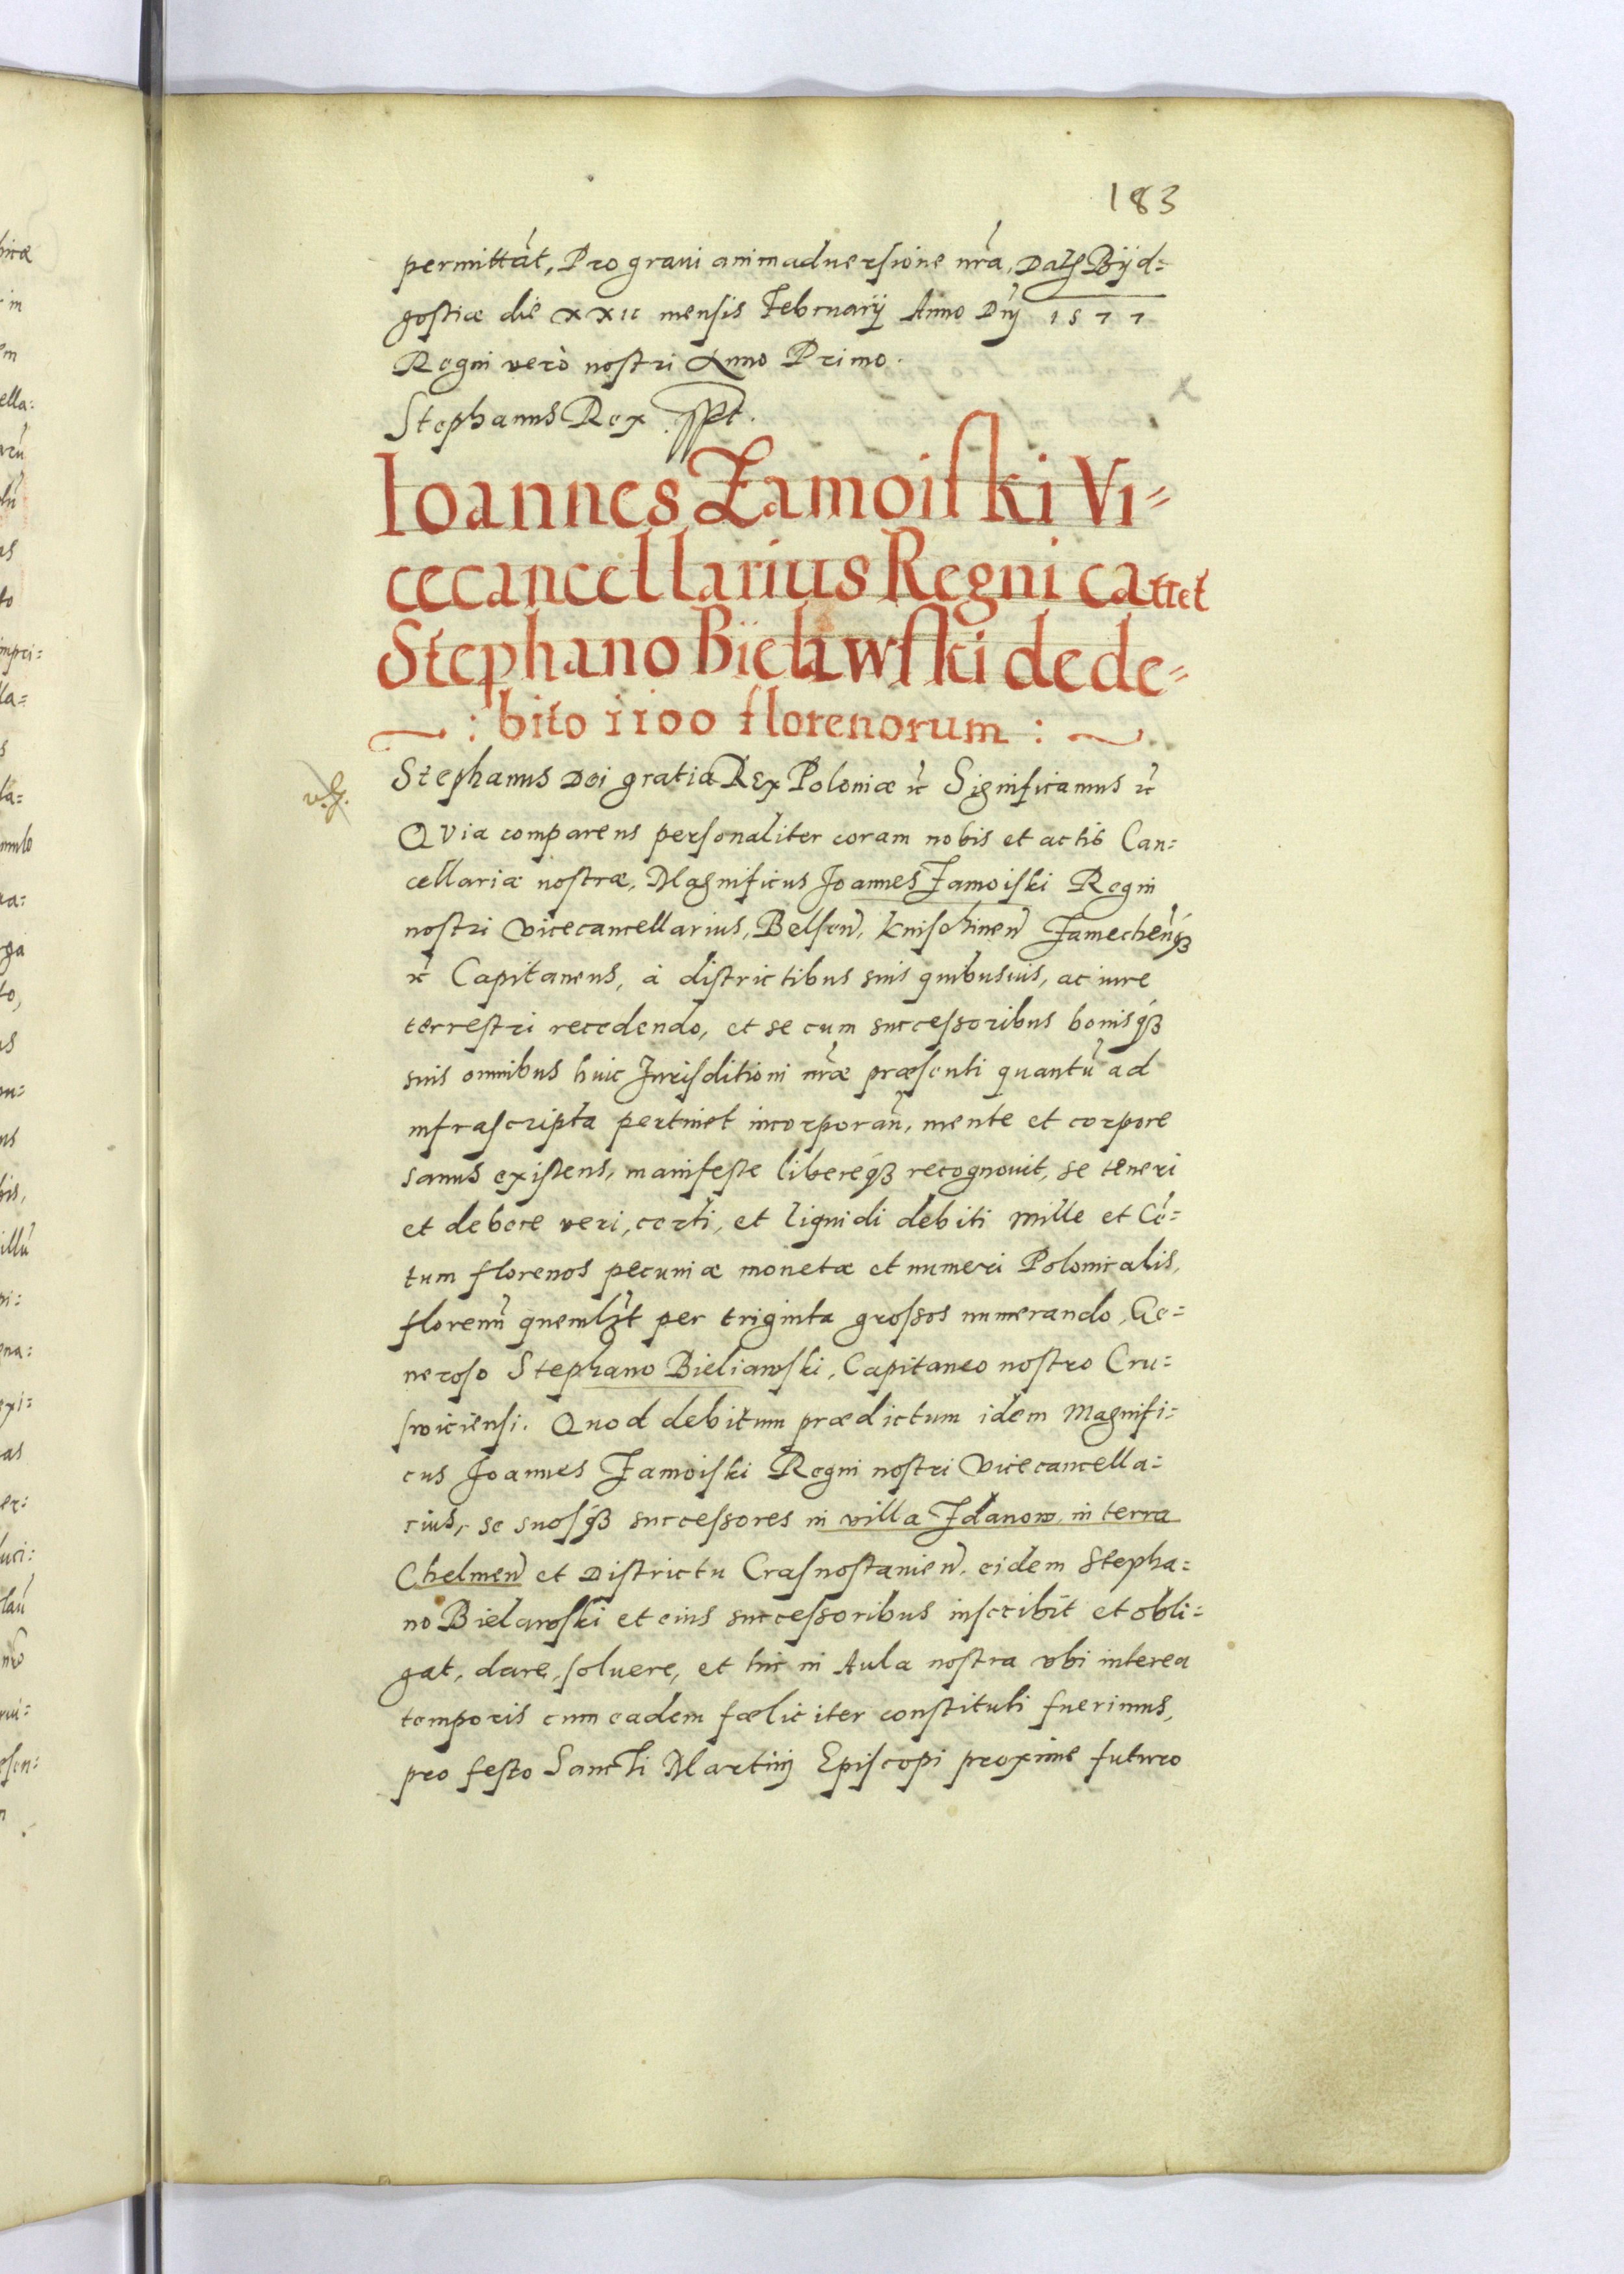 183
permittāt, Pro graui animaduersione nr̃a, Datę Bijd=
gostiæ die XXII mensis Februarij Anno Dn̄j 1577
Regni verò nostri Anno Primo.
Stephanus Rex sspt.
Ioannes Zamoiſki Vi=
cecancellarius Regni cauet
Stephano Bielawſki de de=
: bito 1100 florenorum :
Stephanus Dei gratia Rex Poloniæ ꝛc̃ Significamus ꝛc̃
QVia comparens perſonaliter coram nobis et actis Can=
cellariæ nostræ, Magnificus Joannes Zamoiſki Regni
nostri Vicecancellarius, Belſen̄, Kniſchinen̄ Zamechen̄qꝫ
ꝛc̃ Capitaneus, à diſtrictibus suis quibusuis, ac iure
terreſtri recedendo, et se cum succeſsoribus bonisqꝫ
suis omnibus huic Jurisditioni nr̃æ præsenti quantū ad
infraſcripta pertinet incorporan̄, mente et corpore
sanus exiſtens, manifeſte libereqꝫ recognouit, se teneri
et debere veri, certi, et liquidi debiti mille et Cē=
tum florenos pecuniæ monetæ et numeri Polonicalis,
florenū quemlꝫt per triginta groſsos numerando, Ge=
neroſo Stephano Bieliawſki, Capitaneo nostro Cru=
ſwiciensi. Quod debitum prædictum idem Magnifi=
cus Joannes Zamoiſki Regni nostri Vicecancella=
rius, se suosqꝫ succeſsores in villa Zdanow in terra
Chelmen̄ et Diſtrictu Crasnoſtauien̄. eidem Stepha=
no Bielawſki et eius succeſsoribus inſcribit et obli=
gat, dare, ſoluere, et hic in Aula nostra vbi interea
temporis cum eadem fæliciter conſtituti fuerimus,
pro feſto Sancti Martini Epiſcopi proxime futuro